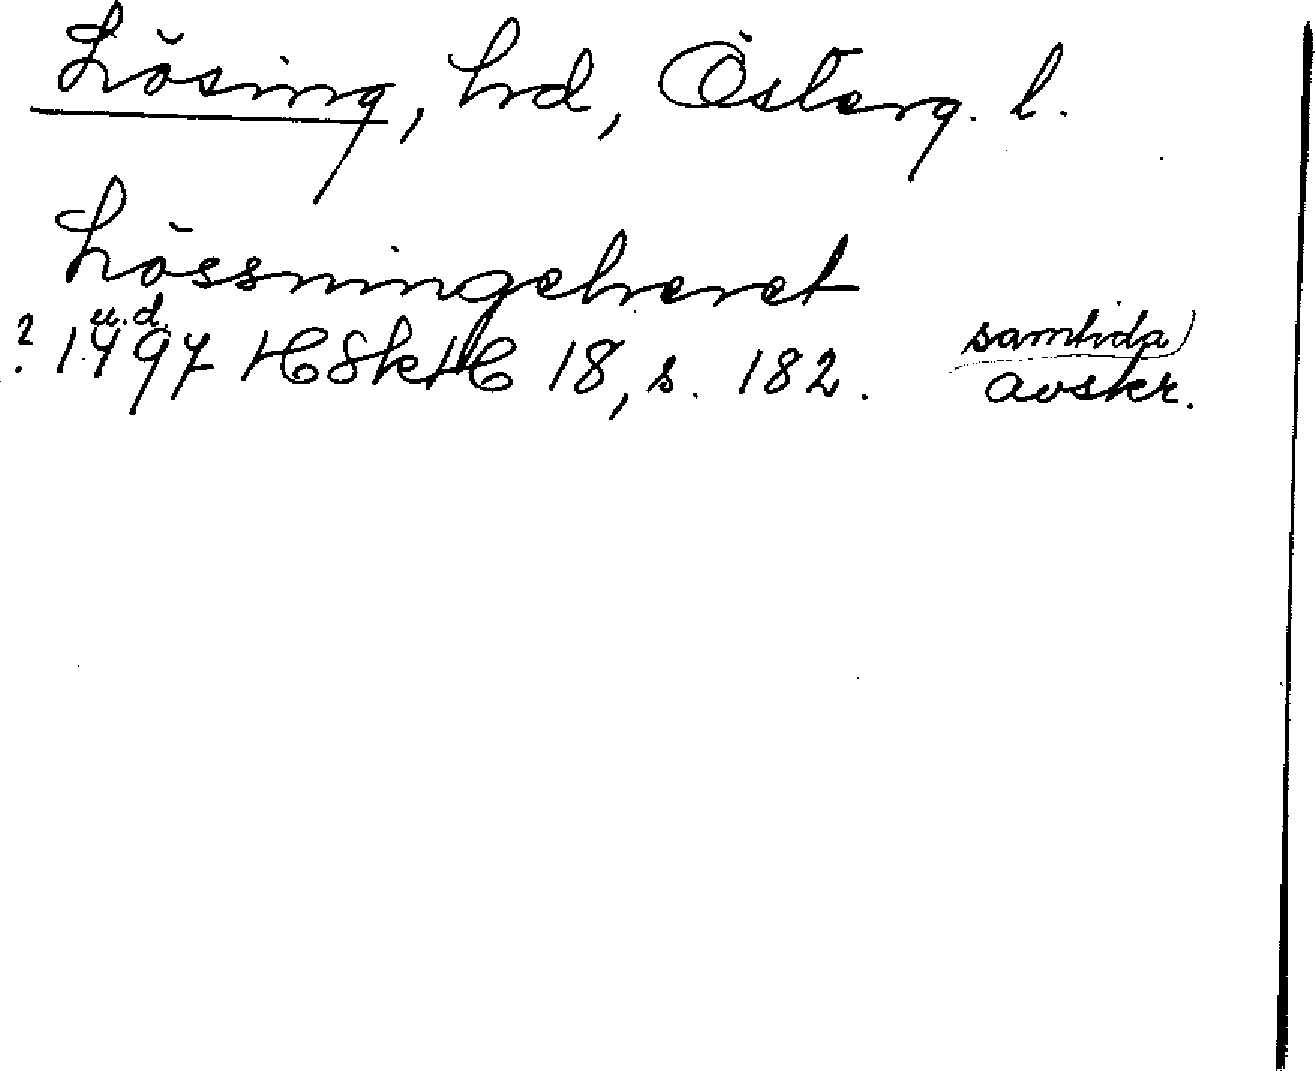 Lösing, hd, Österg. l.
Lössningeheret
u.d.
? 1497 HSkH 18, s. 182. samtida
avskr.